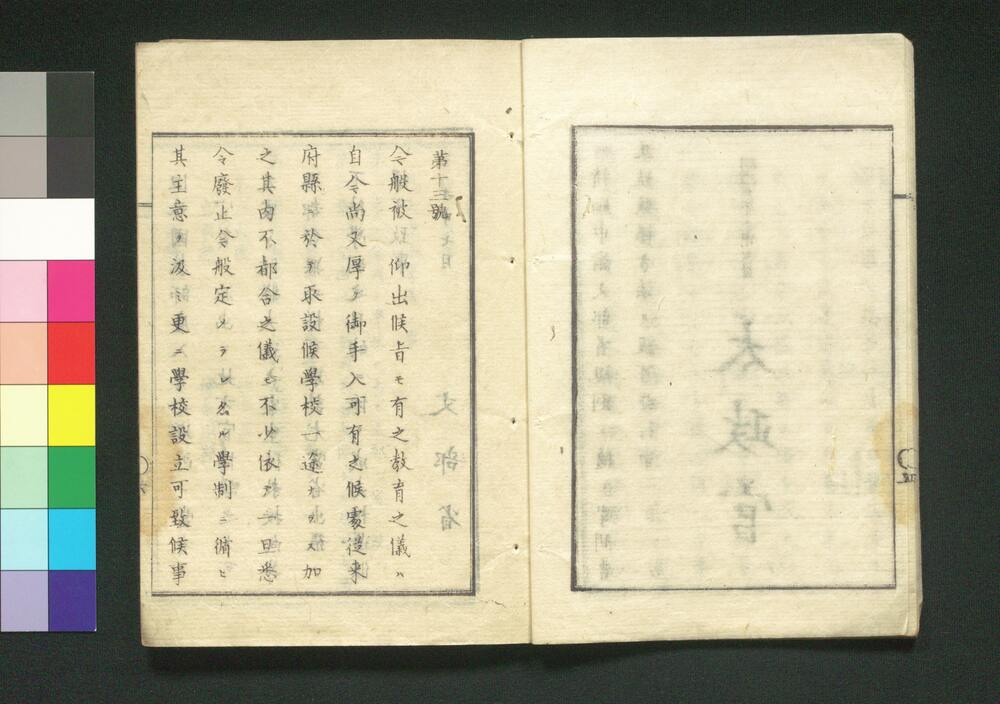 第十三號
今般被 仰出候旨モ有之教育之儀ハ
自今尚又厚ク御手入可有之候處從来
府縣ニ於テ取設候學校一途ナラス加
之其内不都合之儀モ不少依テ一旦悉
令廢止今般定メラレタル學制ニ循ヒ
其主意ヲ汲ミ更ニ學校設立可致候事